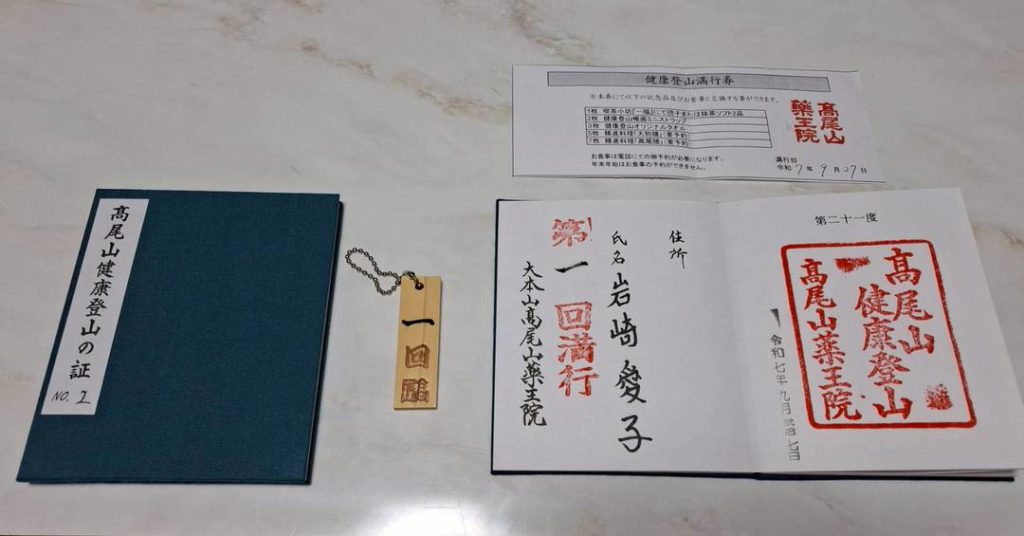 高尾山健康登山の証
NO. 2
一回
健康登山満行券
※本券にては下の記念品及びお食事と交換する事ができます。
1枚 喫茶小坊「一福」にて団子または抹茶ソフト2品
2枚 健康登山帳面ミニストラップ
3枚 健康登山オリジナルタオル
5枚 精進料理「天狗膳」:要予約
7枚 精進料理「高尾膳」:要予約
お食事は電話にての御予約が必要になります。
年末年始はお食事の予約ができません。
髙尾山
藥王院
満行日
令和7年9月27日
住所
氏名 岩崎愛子
第一回満行
大本山髙尾山薬王院
第二十一度
髙尾山
健康登山
髙尾山薬王院
令和七年九月弐拾七日